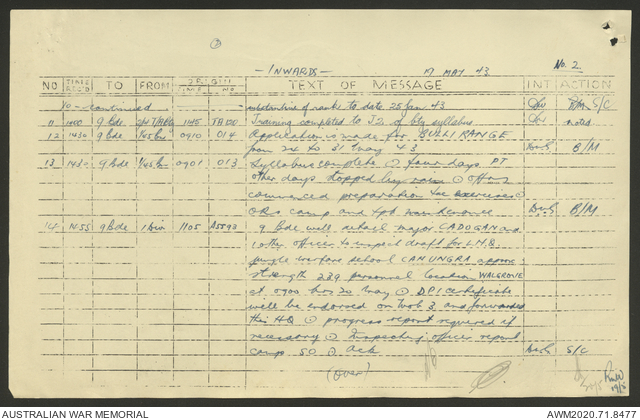 - INWARDS - 19 MAY 43 No. 2
NO TIME REC'D TO FROM ORIGIN TIME NO TEXT OF MESSAGE INT ACTION
10 - continued substantive rank to date 25 Jan 43 S/C
11 1400 9 Bde 1145 TA120 Training completed to J2 of Bty syllabus noted
12 1430 9 Bde 0910 014 Application is made for BULLI RANGE
from 24 to 31 May 43 B/M
13 1430 9 Bde 0901 013 Syllabus complete ⊙ four days PT
other days stopped by ⊙ offrs
commenced preparation exercises ⊙
ORs camp and tpt maintenance B/M
14 1455 9 Bde 1 Div 1105 A5593 9 Bde will detail major CADOGAN and
1 other officer to inspect draft for L.H.Q.
jungle warfare school CANUNGRA approx
strength 239 personnel location WALGROVE
at 0900 hrs 20 May ⊙ DPI certificate
will be endorsed on and forwarded
this HQ ⊙ progress report required if
necessary ⊙ Inspecting officer report
camp SO ⊙ Ack S/C
(over) 19/5
AUSTRALIAN WAR MEMORIAL AWM2020.71.8477